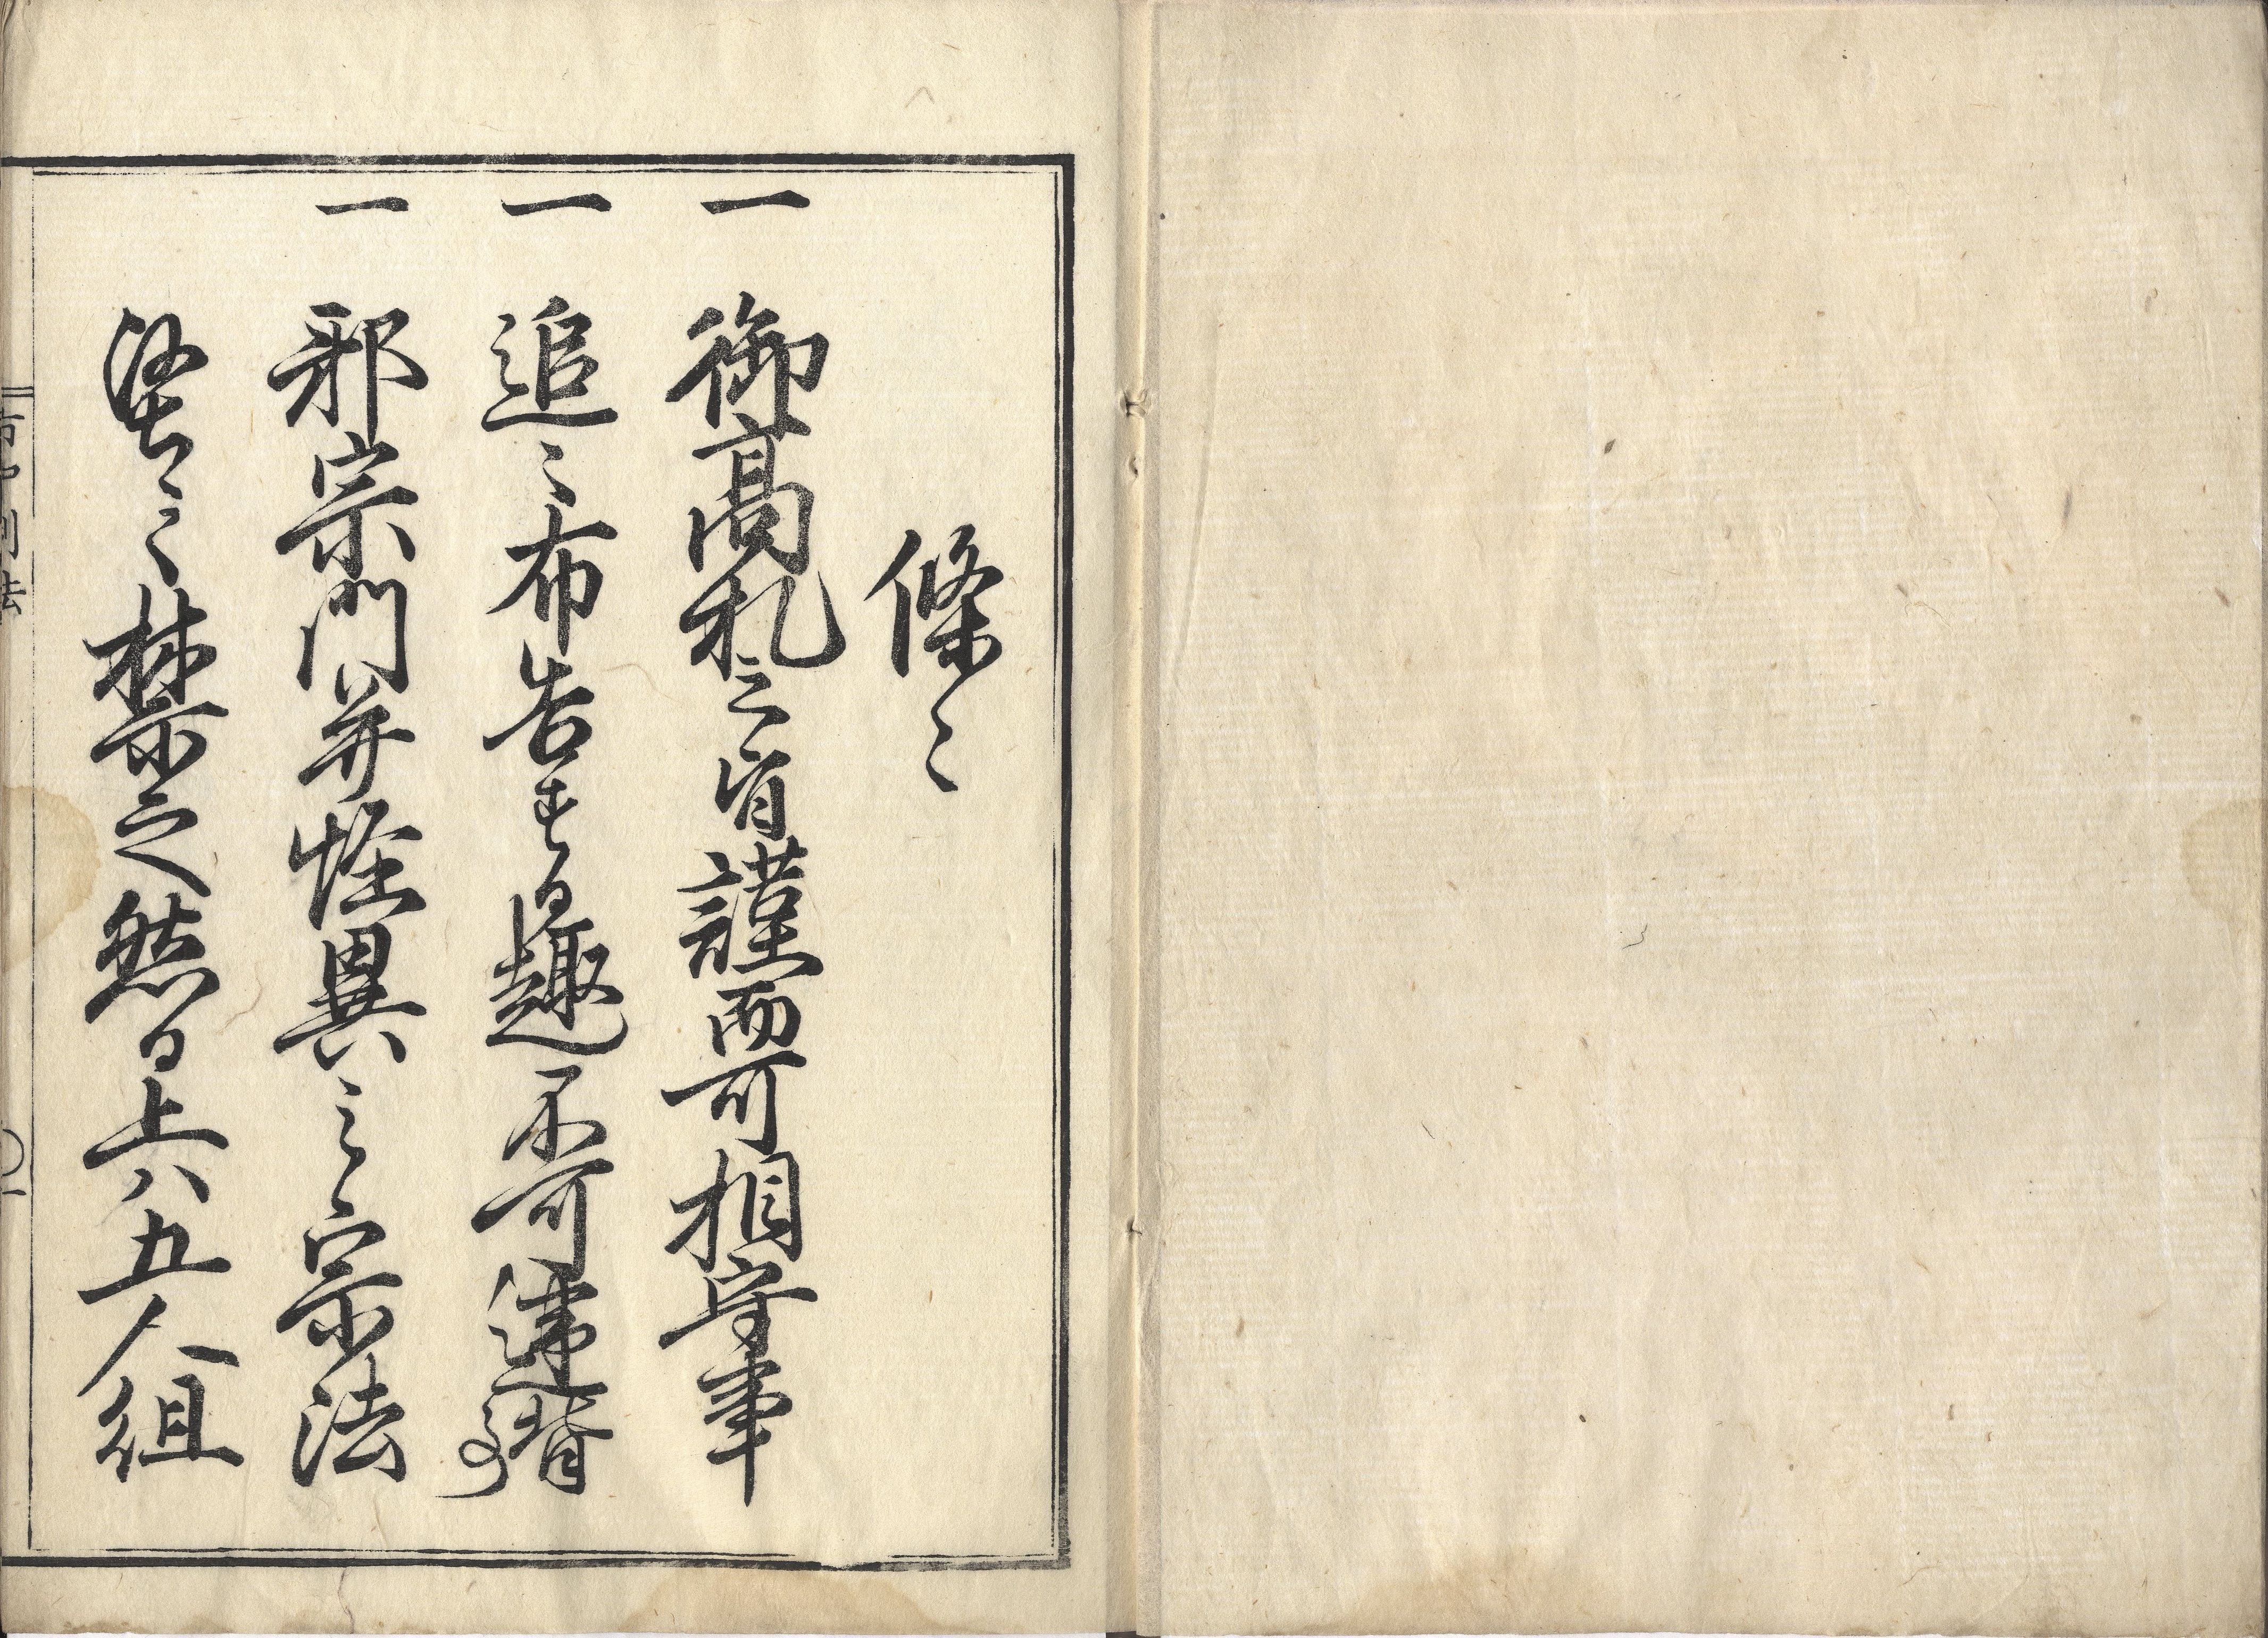 條々
一 御高札之旨謹而可相守事
一 追々布告する趣不可違背事
一 邪宗門并怪異之宗法
禁之然る上八五人組